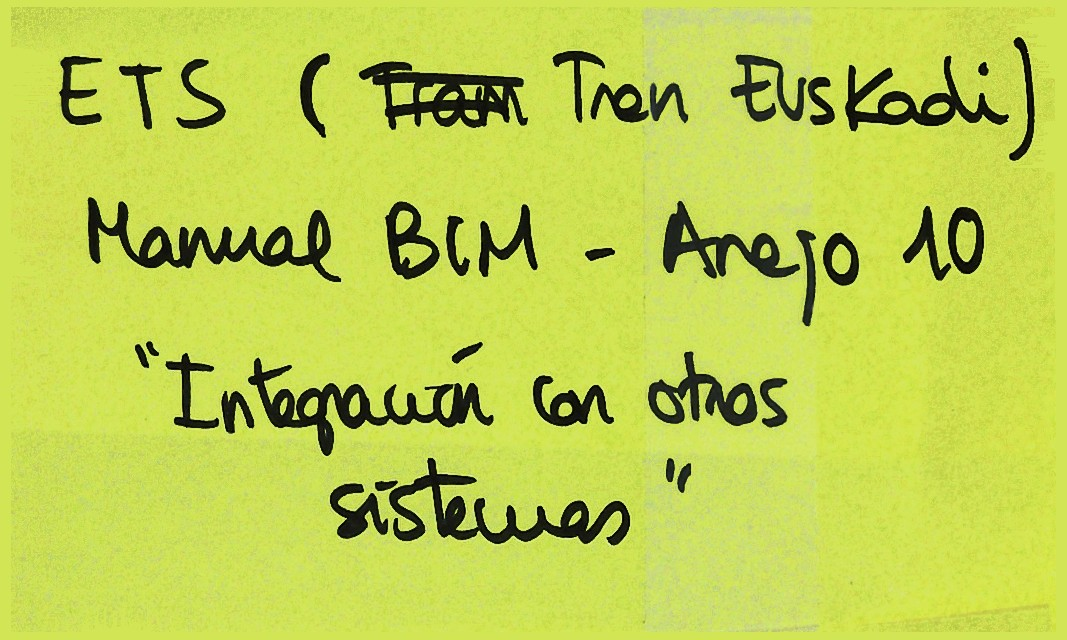 ETS ( Tren Euskadi)
Manual BIM - Anejo 10
"Integración con otros
sistemas"